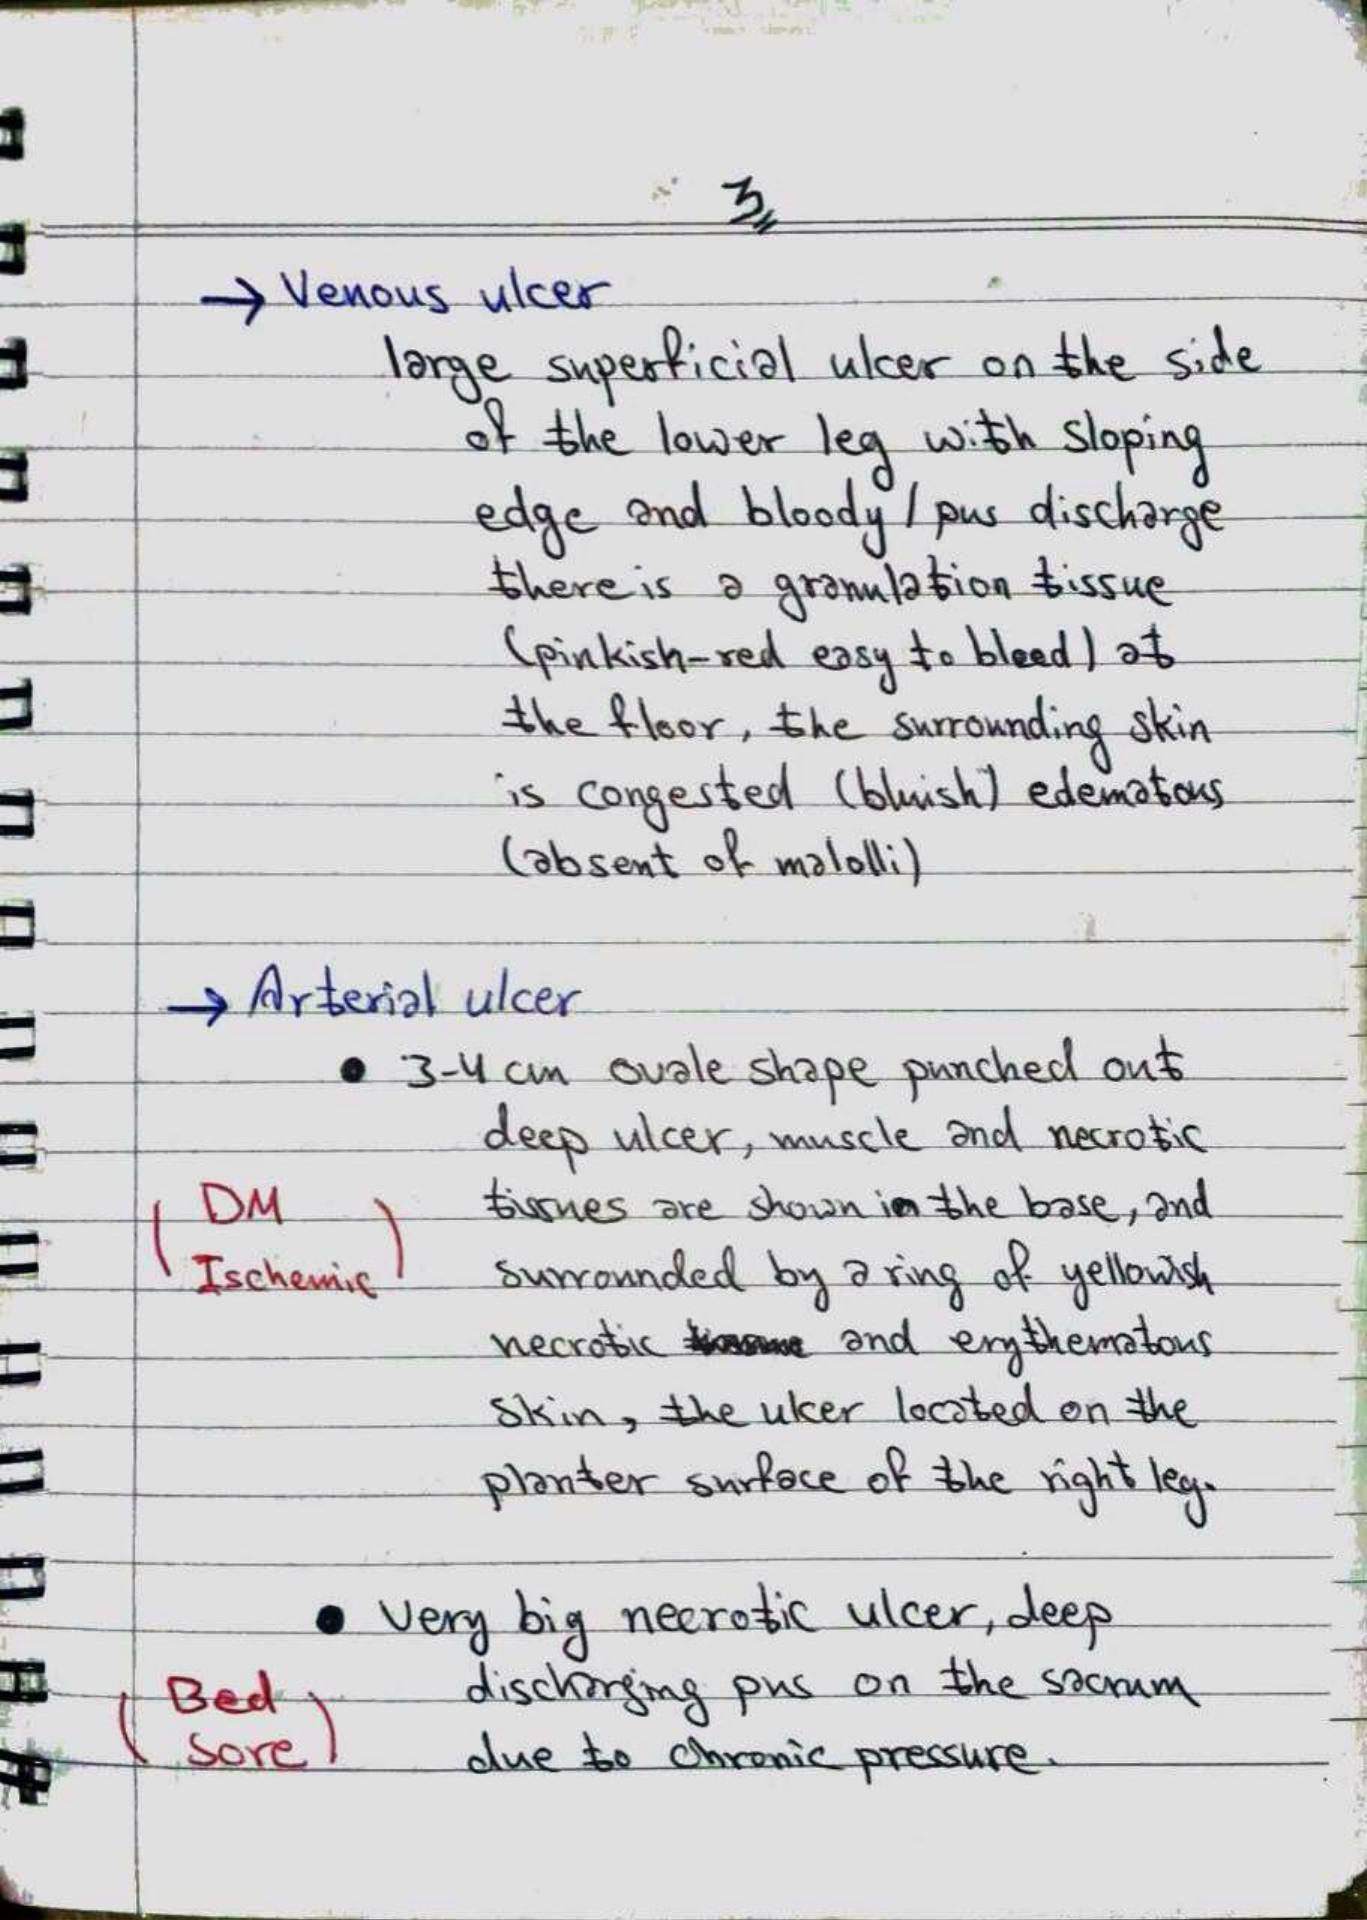 3
→ Venous ulcer
large superficial ulcer on the side
of the lower leg with sloping
edge and bloody / pus discharge
there is a granulation tissue
(pinkish-red easy to bleed) at
the floor, the surrounding skin
is congested (bluish) edematous
(absent of malolli)
→ Arterial ulcer
• 3-4 cm ovale shape punched out
deep ulcer, muscle and necrotic
(DM
Ischemic)
tissues are shown in the base, and
surrounded by a ring of yellowish
necrotic and erythematous
skin, the ulcer located on the
planter surface of the right leg.
• Very big necrotic ulcer, deep
(Bed
sore)
discharging pus on the sacrum
due to chronic pressure.